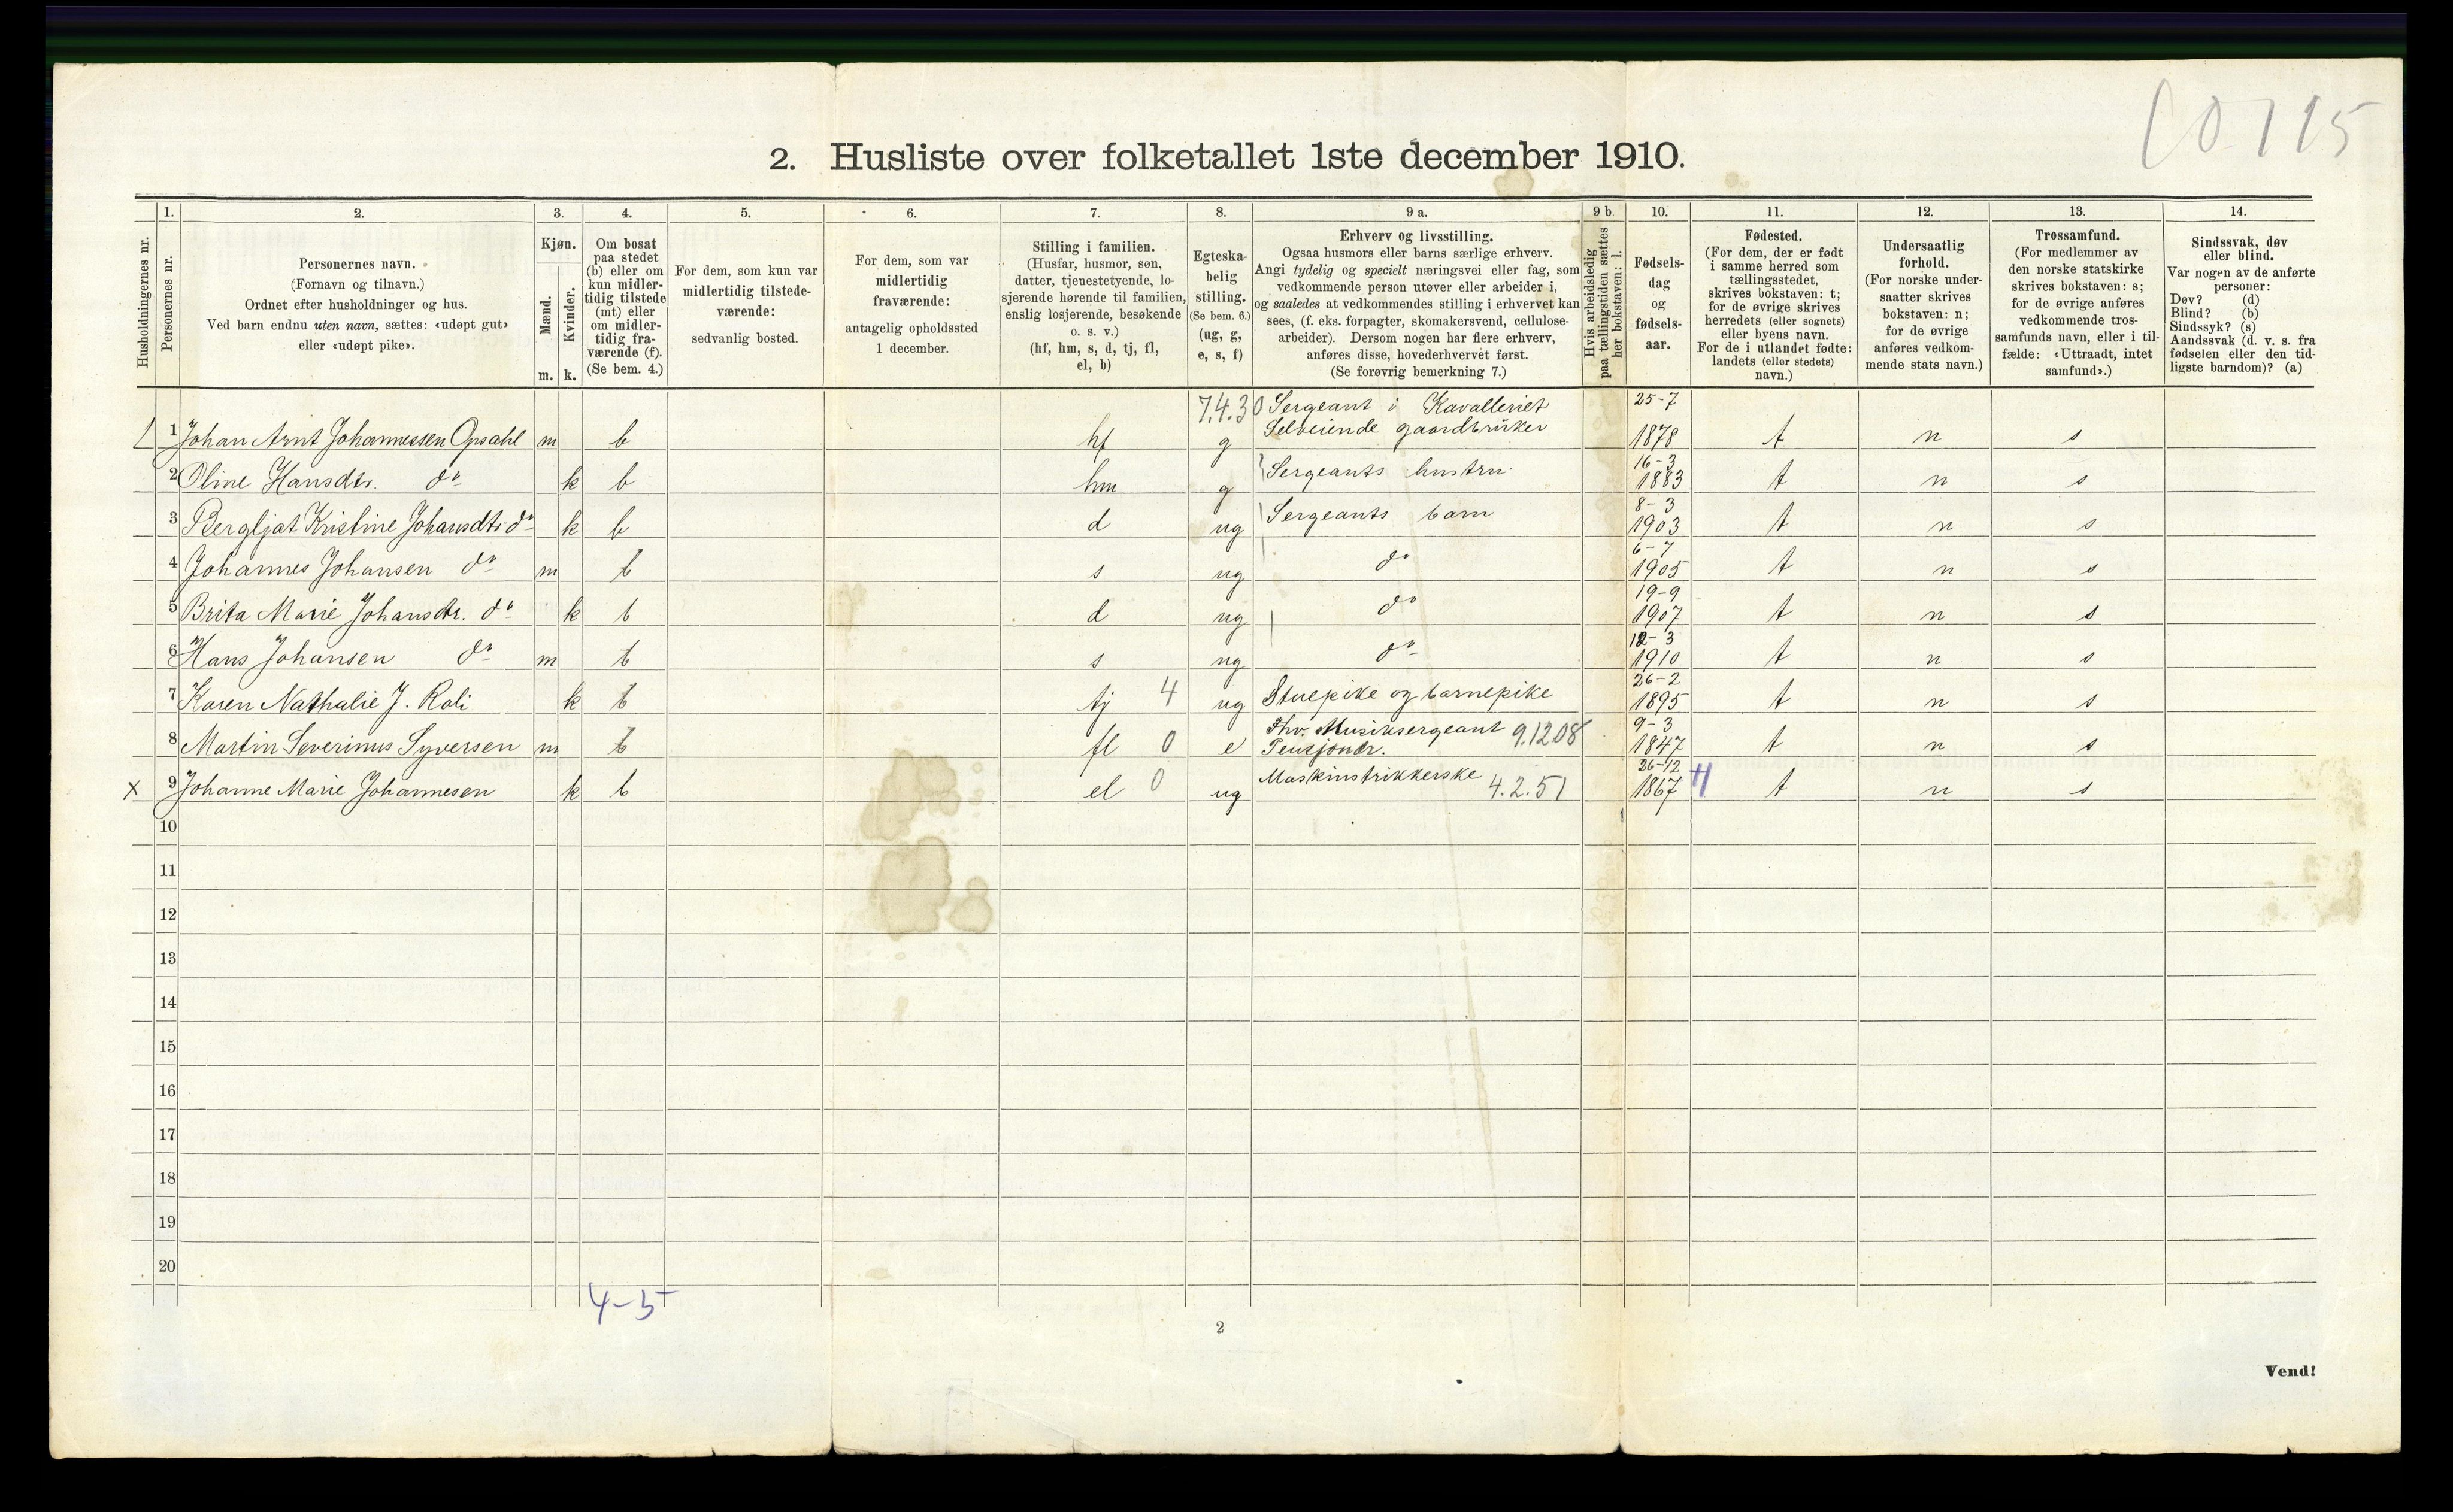 10115
2. Husliste over folketallet 1ste december 1910.
Husholdningernes nr.
1.
Personernes nr.
2.
Personernes navn.
(Fornavn og tilnavn.)
Ordnet efter husholdninger og hus.
Ved barn endnu uten navn, sættes: «udøpt gut»
eller «udøpt pike».
3.
Kjøn.
Mænd.
Kvinder.
m. k.
4.
Om bosat
paa stedet
(b) eller om
kun midler-
tidig tilstede
(mt) eller
om midler-
tidig fra-
værende (f).
(Se bem. 4.)
5.
For dem, som kun var
midlertidig tilstede-
værende:
sedvanlig bosted.
6.
For dem, som var
midlertidig
fraværende:
antagelig opholdssted
1 december.
7.
Stilling i familien.
(Husfar, husmor, søn,
datter, tjenestetyende, lo-
sjerende hørende til familien,
enslig losjerende, besøkende
o. s. v.)
(hf, hm, s, d, tj, fl,
el, b)
8.
Egteska-
belig
stilling.
(Se bem. 6.)
(ug, g,
e, s, f)
9 a.
Erhverv og livsstilling.
Ogsaa husmors eller barns særlige erhverv.
Angi tydelig og specielt næringsvei eller fag, som
vedkommende person utøver eller arbeider i,
og saaledes at vedkommendes stilling i erhvervet kan
sees, (f. eks. forpagter, skomakersvend, cellulose-
arbeider). Dersom nogen har flere erhverv,
anføres disse, hovederhvervet først.
(Se forøvrig bemerkning 7.)
9 b.
Hvis arbeidsledig
paa tællingstiden sættes
her bokstaven: l.
10.
Fødsels-
dag
og
fødsels-
aar.
11.
Fødested.
(For dem, der er født
i samme herred som
tællingsstedet,
skrives bokstaven: t;
for de øvrige skrives
herredets (eller sognets)
eller byens navn.
For de i utlandet fødte:
landets (eller stedets)
navn.)
12.
Undersaatlig
forhold.
(For norske under-
saatter skrives
bokstaven: n;
for de øvrige
anføres vedkom-
mende stats navn.)
13.
Trossamfund.
(For medlemmer av
den norske statskirke
skrives bokstaven: s;
for de øvrige anføres
vedkommende tros-
samfunds navn, eller i til-
fælde: «Uttraadt, intet
samfund».)
14.
Sindssvak, døv
eller blind.
Var nogen av de anførte
personer:
Døv? (d)
Blind? (b)
Sindssyk? (s)
Aandssvak (d. v. s. fra
fødselen eller den tid-
ligste barndom)? (a)
7.4.30 Sergeant i Kavalleriet 25-7
1 1 Johan Arnt Johannessen Opsahl m b hf g Selveiende gaardbruker 1878 t n s
2 Oline Hansdtr. do k b hm g Sergeants hustru 16-3 1883 t n s
3 Bergljot Kristine Johansdtr do k b d ug Sergeants barn 8-3 1903 t n s
4 Johannes Johansen do m b s ug do 6-7 1905 t n s
5 Brita Marie Johansdtr. do k b d ug do 19-9 1907 t n s
6 Hans Johansen do m b s ug do 12-3 1910 t n s
7 Karen Nathalie J. Roli k b tj 4 ug Stuepike og barnepike 26-2 1895 t n s
8 Martin Severinus Syversen m b fl 0 e Fhv. Musiksergeant 9.12 08 Pensjonær. 9-3 1847 t n s
x 9 Johanne Marie Johannesen k b el 0 ug Maskinstrikkerske 4.2.51 26-12 1867 t n s
10
11
12
13
14
15
16
17
18
19
20
4-5
2
Vend!